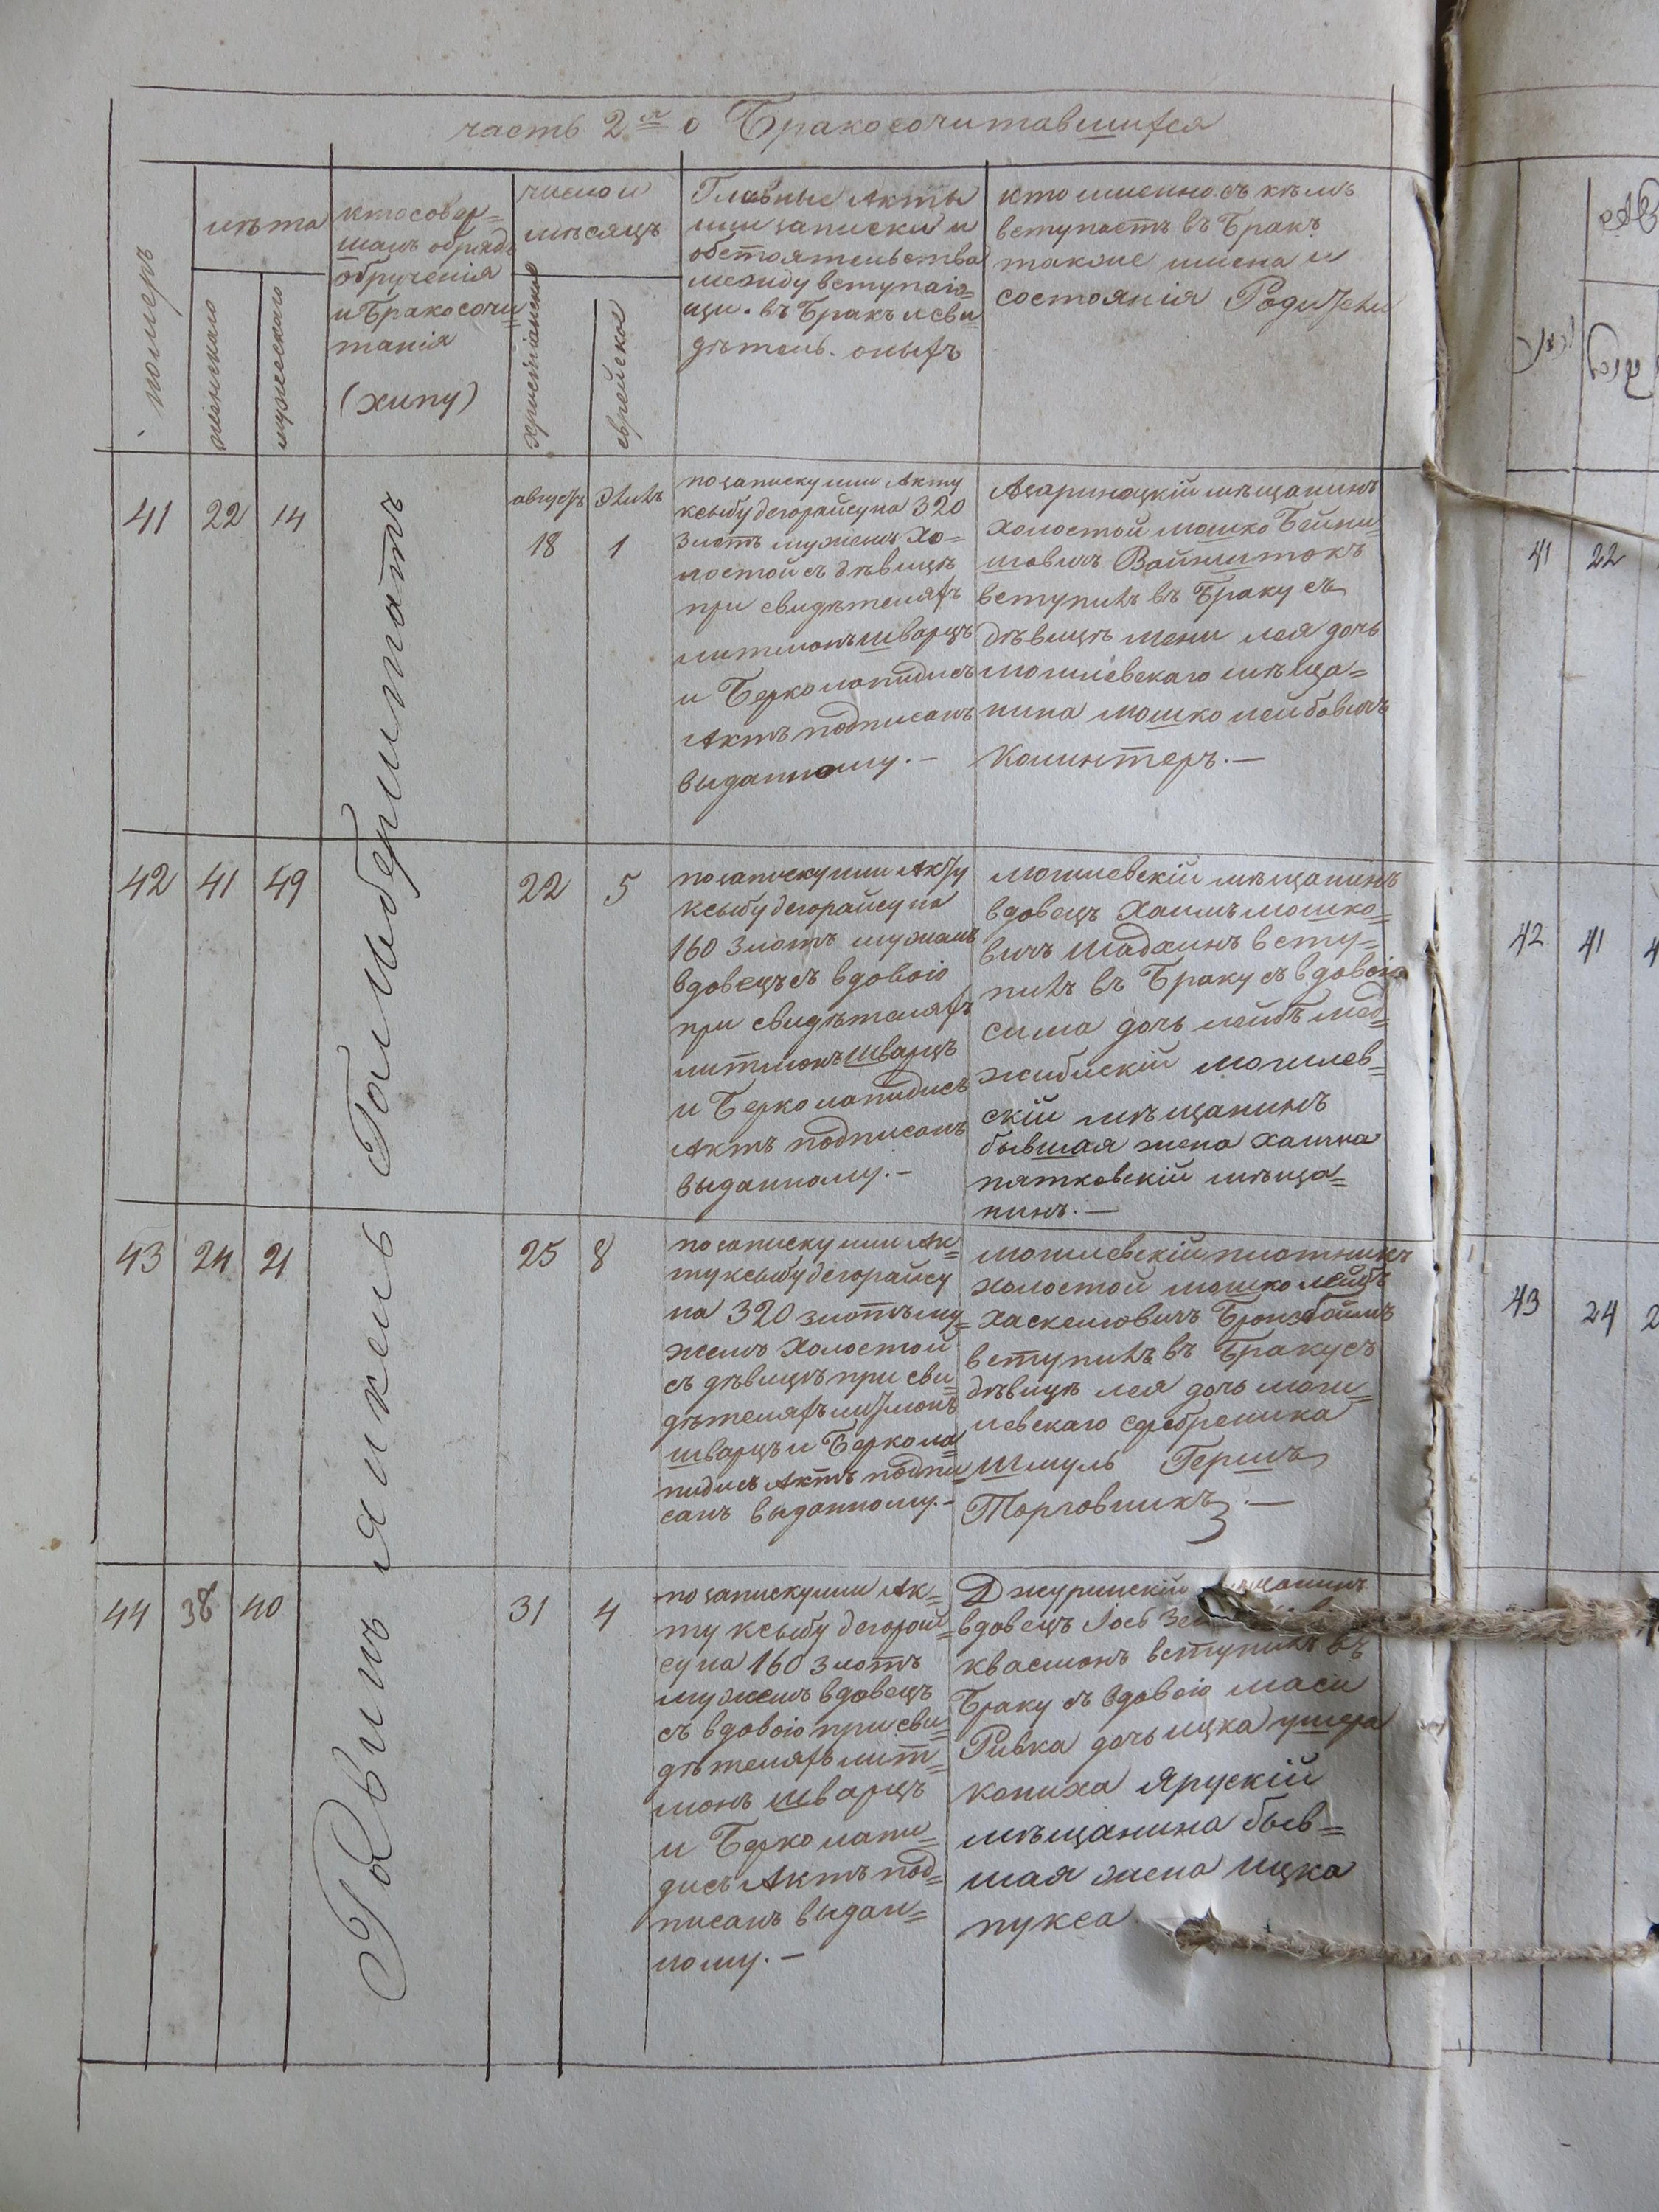 часть 2ая о Бракосочитавшихся
номеръ
лѣта
женскаго
мужескаго
кто совер=
шалъ обрядъ
обрученія
и Бракосочи=
танія
(хипу)
число и
мѣсяцъ
христіанское
еврейское
Главные Акты
или записки и
обстоятельства
между вступаю=
щи. въ Бракъ и сви=
дѣтель. оныхъ
кто именно съ кѣмъ
вступаетъ въ Бракъ
также имена и
состоянія Родителей
Равинъ янкель Гальберштатъ
41 22 14
августъ Элиль
18 1
по запискуили Акту
ксыбу дегорайсу на 320
злотъ мужемъ Хо=
лостой съ дѣвицѣ
при свидѣтеляхъ
литманъ Шварцъ
и Берко лапидисъ
Актъ подписанъ
выданному. —
мѣщанинъ
холостой мошко Бейни=
шовичъ Вайншток
вступилъ въ Браку съ
дѣвицѣ мени лея дочь
могилевскаго мѣща=
нина мошко лейбовичъ
Колинтеръ. —
42 41 49
22 5
по запискуили Акту
ксыбу дегорайсу на
160 злотъ мужемъ
вдовецъ съ вдовою
при свидѣтеляхъ
литманъ Шварцъ
и Берко лапидисъ
Актъ подписанъ
выданному. —
могилевскій мѣщанинъ
вдовецъ Хаимъ мошко=
вичъ Шадхинъ всту=
пилъ въ Браку съ вдовою
сима дочь лейбъ мед=
жибискій могилев=
скій мѣщанинъ
бывшая жена хаимка
пятковскій мѣща=
нинъ. —
43 24 21
25 8
по запискуили Ак=
ту ксыбу дегорайсу
на 320 злотъ му=
жемъ Холостой
съ дѣвицѣ при сви=
дѣтеляхъ литманъ
шварцъ и Берко ла=
пидисъ Актъ подпи=
санъ выданному. —
могилевскій плотникъ
холостой мошко лейбъ
Хаскелиовичъ Бронзбоймъ
вступилъ въ Браку съ
дѣвицѣ лея дочь моги=
левскаго серебреника
Шмуль Гершъ
Торговникъ. —
44 38 40
31 4
по запискуили Ак=
ту ксыбу дегорай=
су на 160 злотъ
мужемъ вдовецъ
съ вдовою при сви=
дѣтеляхъ лит=
манъ шварцъ
и Берко лапи=
дисъ Актъ под=
писанъ выдан=
ному. —
Джуринскій мѣщанинъ
вдовецъ Іосъ
квасманъ вступилъ въ
Браку съ вдовою маси
Ривка дочь ицка ушера
копиха Ярускій
мѣщанина быв=
шая жена ицка
пукса
41 22
42 41 4
43 24 2